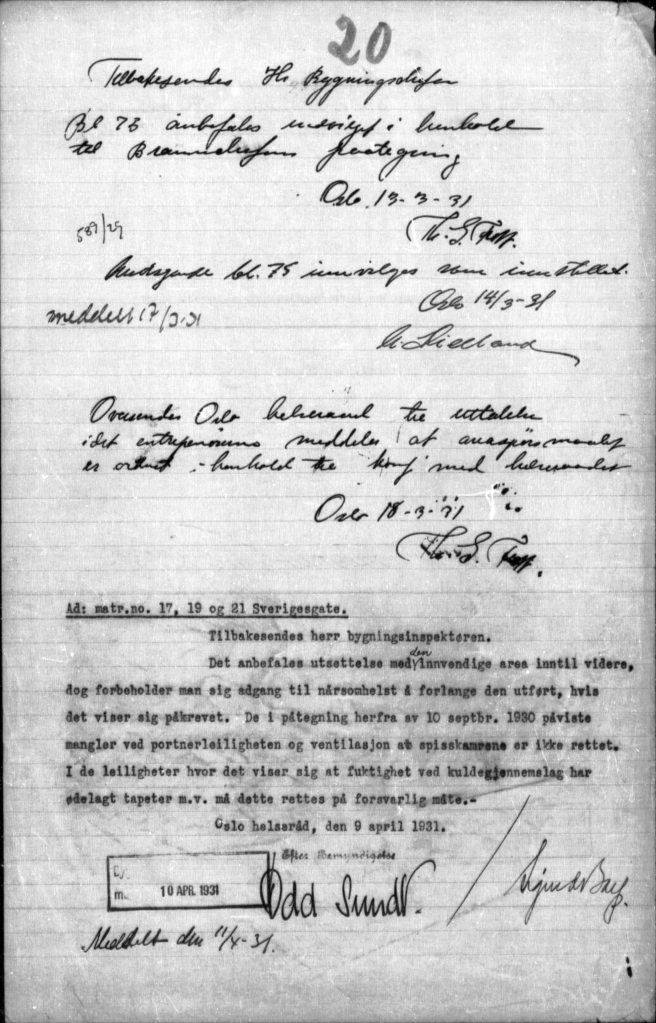 20
Tilbakesendes Hr. Bygningschefen
Bl 73 anbefales indvilget i henhold
til Brannchefens paategning
Oslo 13-3-31
Th. S.
587/29
bl. 75 innvilges som innstillet.
Oslo 14/3-31
meddelt 17/3-31
Oversendes Oslo helseraad til uttalelse
idet entreprenørene meddeler at
er ordnet i henhold til konf. med helseraadet
Oslo 18-3-31
Th. S.
Ad: matr.no. 17, 19 og 21 Sverigesgate.
Tilbakesendes herr bygningsinspektøren.
Det anbefales utsettelse med den innvendige area inntil videre,
dog forbeholder man sig adgang til nårsomhelst å forlange den utført, hvis
det viser sig påkrevet. De i påtegning herfra av 10 septbr. 1930 påviste
mangler ved portnerleiligheten og ventilasjon at spisskamrene er ikke rettet.
I de leiligheter hvor det viser sig at fuktighet ved kuldegjennemslag har
ødelagt tapeter m.v. må dette rettes på forsvarlig måte.-
Oslo helseråd, den 9 april 1931.
Efter Bemyndigelse
10 APR. 1931
Odd Sundt.
Meddelt den 11/4-31.